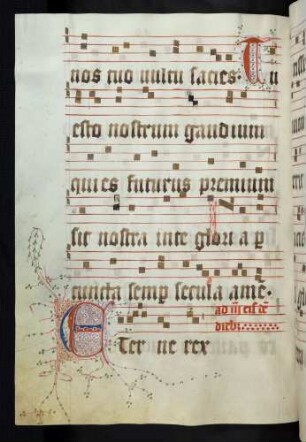 nos tuo vultu sacies. Tu
esto nostrum gaudium
qui es futurus premium
sit nostra in te glori a p
cuncta semp secula ame.
ad
Eter ne rex